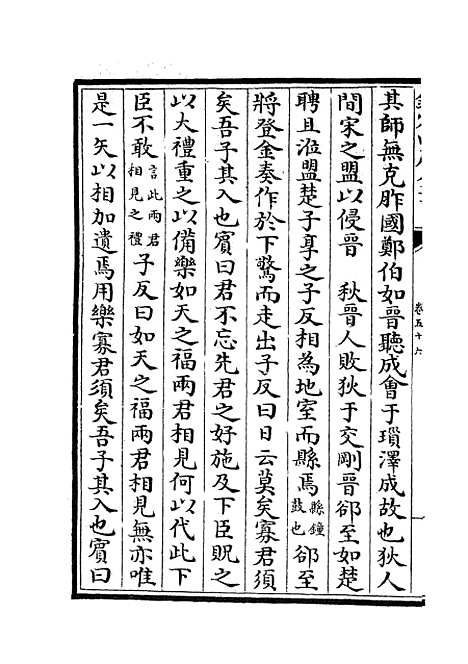 其師無克胙國鄭伯如晉聽成會于瑣澤成故也狄人
間宋之盟以侵晉　秋晉人敗狄于交剛晉郤至如楚
聘且涖盟楚子享之子反相為地室而縣焉縣鐘鼓也郤至
將登金奏作於下驚而走出子反曰日云莫矣寡君須
矣吾子其入也賓曰君不忘先君之好施及下臣貺之
以大禮重之以備樂如天之福兩君相見何以代此下
臣不敢言此兩君相見之禮子反曰如天之福兩君相見無亦唯
是一矢以相加遺焉用樂寡君須矣吾子其入也賓曰
卷五十六